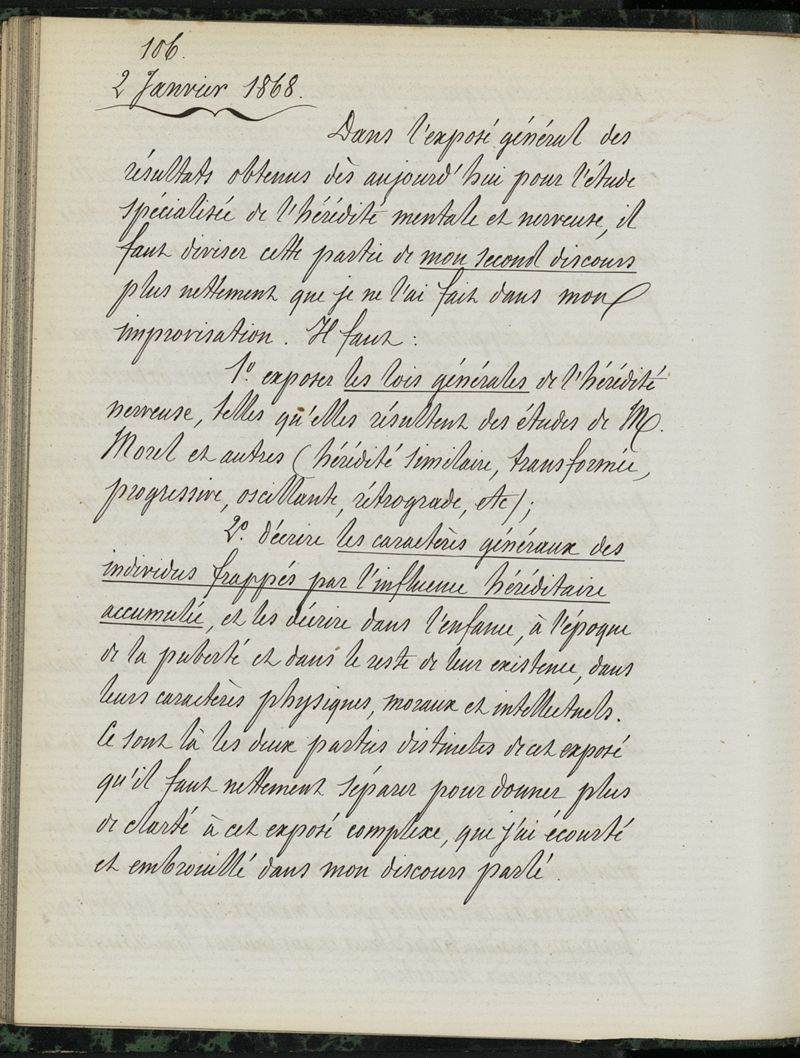 106.
2 Janvier 1868.
Dans l'exposé général des
résultats obtenus dès aujourd'hui pour l'étude
spécialisée de l'hérédité mentale et nerveuse, il
faut diviser cette partie de mon second discours
plus nettement que je ne l'ai fait dans mon
improvisation. Il faut :
1º. exposer les lois générales de l'hérédité
nerveuse, telles qu'elles résultent des études de M.
Morel et autres (hérédité similaire, transformée,
progressive, oscillante, rétrograde, etc);
2º. décrire les caractères généraux des
individus frappés par l'influence héréditaire
accumulée, et les décrire dans l'enfance, à l'époque
de la puberté et dans le reste de leur existence, dans
leurs caractères physiques, moraux et intellectuels.
Ce sont là les deux parties distinctes de cet exposé
qu'il faut nettement séparer pour donner plus
de clarté à cet exposé complexe, que j'ai écourté
et embrouillé dans mon discours parlé.